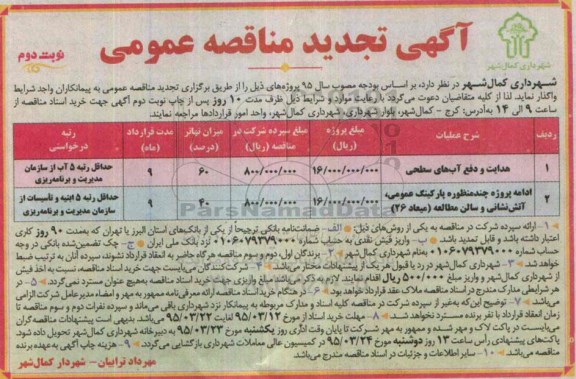 آگهی تجدید مناقصه عمومی
نوبت دوم
شهرداری کمال‌شهر
شهرداری کمال‌شهر در نظر دارد، بر اساس بودجه مصوب سال ۹۵ پروژه‌های ذیل را از طریق برگزاری تجدید مناقصه عمومی به پیمانکاران واجد شرایط
واگذار نماید. لذا از کلیه متقاضیان دعوت می‌گردد با رعایت موارد و شرایط ذیل ظرف مدت ۱۰ روز پس از چاپ نوبت دوم آگهی جهت خرید اسناد مناقصه از
ساعت ۹ الی ۱۴ به‌آدرس: کرج – کمال‌شهر، بلوار شهرداری، شهرداری کمال‌شهر، واحد امور قراردادها مراجعه نمایند.
ردیف شرح عملیات مبلغ پروژه (ریال) مبلغ سپرده شرکت در مناقصه (ریال) میزان تهاتر (درصد) مدت قرارداد (ماه) رتبه درخواستی
۱ هدایت و دفع آب‌های سطحی ۱۶/۰۰۰/۰۰۰/۰۰۰ ۸۰۰/۰۰۰/۰۰۰ ۶۰ ۹ حداقل رتبه ۵ آب از سازمان مدیریت و برنامه‌ریزی
۲ ادامه پروژه چندمنظوره پارکینگ عمومی، آتش‌نشانی و سالن مطالعه (میعاد ۲۶) ۱۶/۰۰۰/۰۰۰/۰۰۰ ۸۰۰/۰۰۰/۰۰۰ ۴۰ ۹ حداقل رتبه ۵ ابنیه و تأسیسات از سازمان مدیریت و برنامه‌ریزی
ParsNamadData
۱- ارائه سپرده شرکت در مناقصه به یکی از روش‌های ذیل: الف- ضمانت‌نامه بانکی ترجیحاً از یکی از بانک‌های استان البرز یا تهران که به‌مدت ۹۰ روز کاری
اعتبار داشته باشد و قابل تمدید باشد. ب- واریز فیش نقدی به حساب شماره ۰۱۰۶۰۷۹۳۷۹۰۰۰ نزد بانک ملی ایران ج- چک تضمین‌شده بانکی در وجه
حساب شماره ۰۱۰۶۰۷۹۳۷۹۰۰۰ به‌نام شهرداری کمال‌شهر ۲- برندگان اول، دوم و سوم مناقصه هرگاه حاضر به انعقاد قرارداد نشوند، سپرده آنان به ترتیب ضبط
خواهد شد. ۳- شهرداری کمال‌شهر در رد یا قبول هر یک از پیشنهادات مختار می‌باشد. ۴- شرکت‌کنندگان می‌بایست جهت خرید اسناد مناقصه، نسبت به اخذ فیش
از شهرداری کمال‌شهر و واریز مبلغ ۵۰۰/۰۰۰ ریال اقدام نمایند. لازم به ذکر می‌باشد مبلغ واریزی جهت خرید اسناد مناقصه به‌هیچ عنوان مسترد نمی‌گردد. ۵- در
هر شرایطی مدارک مندرج در اسناد مناقصه ملاک عقد قرارداد خواهد بود. ۶- در هنگام خرید اسناد مناقصه ارائه معرفی‌نامه ممهور به مهر و امضاء مدیرعامل شرکت الزامی
می‌باشد. ۷- توضیح این‌که به‌غیر از سپرده شرکت در مناقصه کلیه اسناد و مدارک مربوطه به پیمانکار نزد شهرداری باقی می‌ماند و سپرده نفرات دوم و سوم مناقصه تا
زمان انعقاد قرارداد با نفر برنده مسترد نخواهد شد. ۸- مهلت خرید اسناد از مورخ ۹۵/۰۳/۱۲ لغایت ۹۵/۰۳/۲۲ می‌باشد. بدیهی است پیشنهادات مناقصه‌گران
می‌بایست در پاکت لاک و مهر شده و ممهور به مهر شرکت تا پایان وقت اداری روز یکشنبه مورخ ۹۵/۰۳/۲۳ به دبیرخانه شهرداری کمال‌شهر تحویل داده شود.
پاکت‌های پیشنهادی رأس ساعت ۱۳ روز دوشنبه مورخ ۹۵/۰۳/۲۴ در کمیسیون عالی معاملات شهرداری بازگشایی می‌گردد. ۹- هزینه چاپ آگهی به‌عهده برنده
مناقصه می‌باشد. ۱۰- سایر اطلاعات و جزئیات در اسناد مناقصه مندرج می‌باشد.
مهرداد ترابیان - شهردار کمال‌شهر